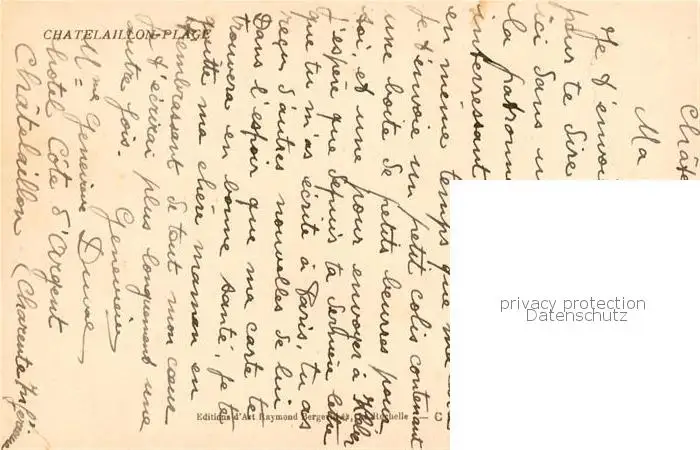 CHATELAILLON-PLAGE
Châte
Ma
Je t'envoi
pour te dire
ici dans u
la patronn
interressant
en même temps que ma
Je t'envoie un petit colis contenant
une boite de petits beurres pour
toi, et une pour envoyer à
J'espère que depuis ta dernière lettre
que tu m'as écrite à Paris, tu as
reçu d'autres nouvelles de lui
Dans l'espoir que ma carte te
trouvera en bonne santé, je te
quitte ma chère maman en
t'embrassant de tout mon cœur
Je t'écrirai plus longuement une
autre fois. Geneviève
Mme Geneviève Duval
hotel Côte d'Argent
Châtelaillon (Charente Infre
Editions d'Art Raymond Berge
privacy protection
Datenschutz